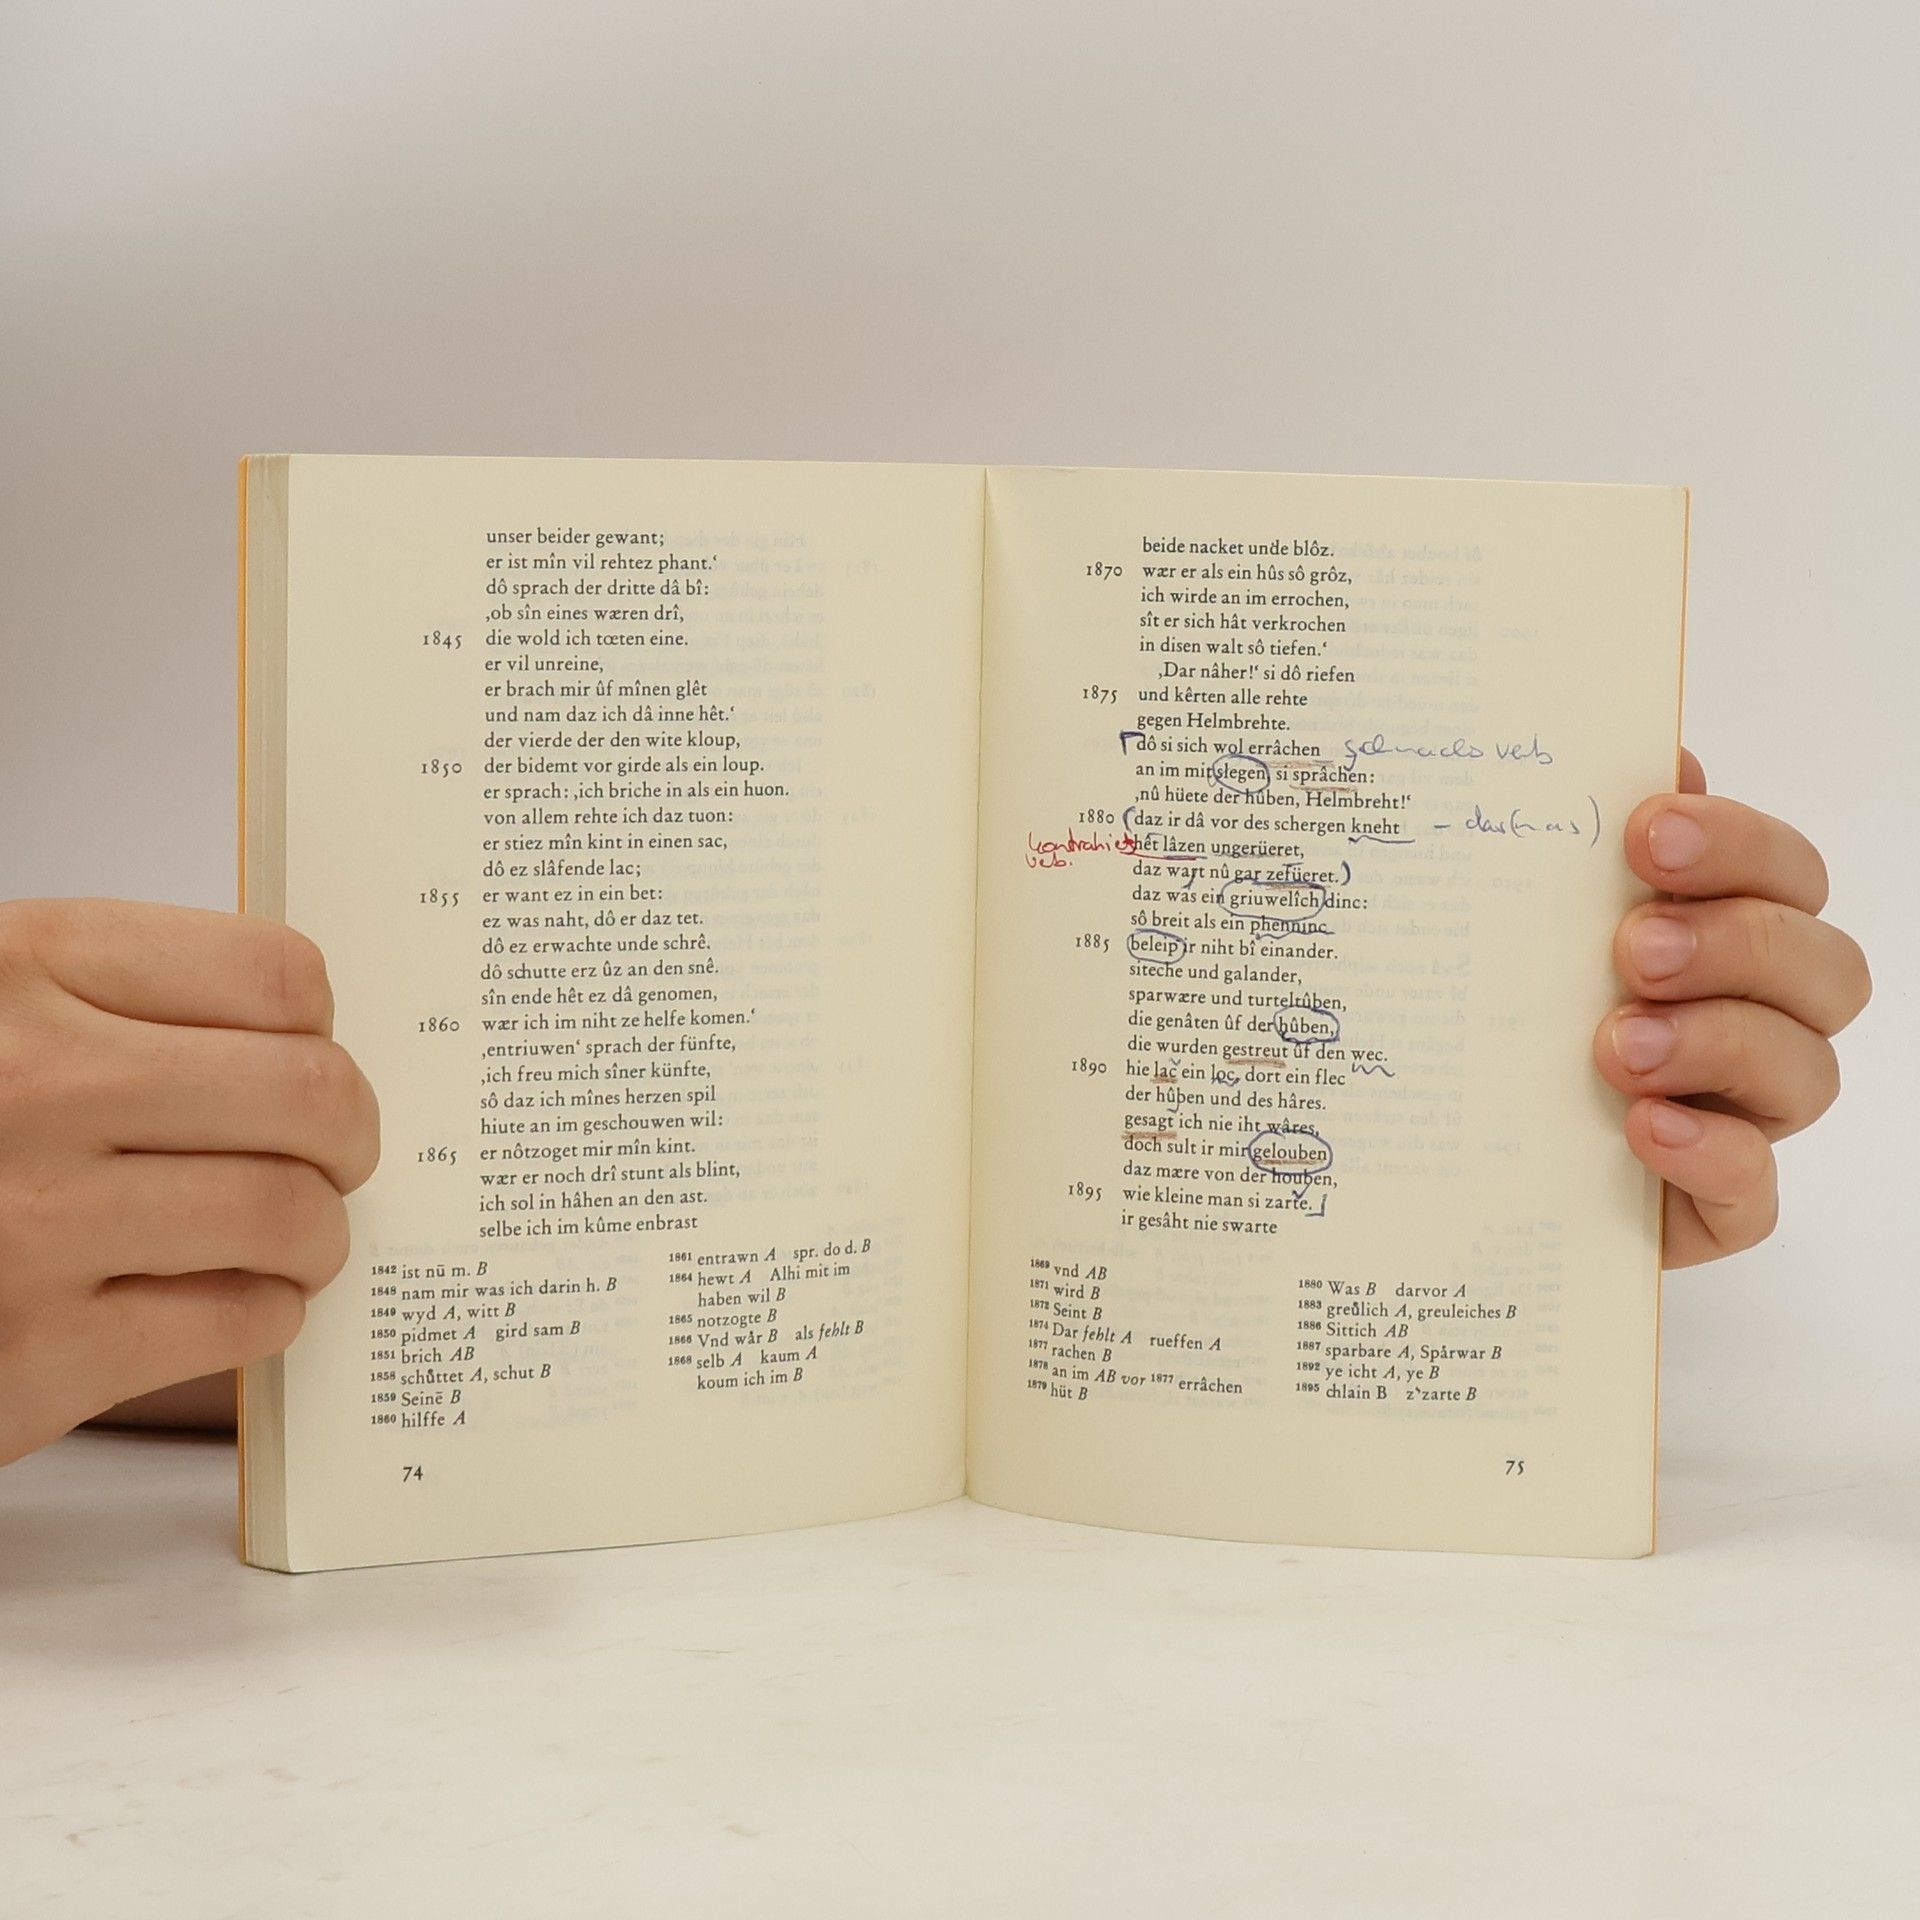 unser beider gewant;
er ist mîn vil rehtez phant.‘
dô sprach der dritte dâ bî:
‚ob sîn eines wæren drî,
1845 die wold ich tœten eine.
er vil unreine,
er brach mir ûf mînen glêt
und nam daz ich dâ inne hêt.‘
der vierde der den wite kloup,
1850 der bidemt vor girde als ein loup.
er sprach: ‚ich briche in als ein huon.
von allem rehte ich daz tuon:
er stiez mîn kint in einen sac,
dô ez slâfende lac;
1855 er want ez in ein bet:
ez was naht, dô er daz tet.
dô ez erwachte unde schrê.
dô schutte erz ûz an den snê.
sîn ende hêt ez dâ genomen,
1860 wær ich im niht ze helfe komen.‘
‚entriuwen‘ sprach der fünfte,
‚ich freu mich sîner künfte,
sô daz ich mînes herzen spil
hiute an im geschouwen wil:
1865 er nôtzoget mir mîn kint.
wær er noch drî stunt als blint,
ich sol in hâhen an den ast.
selbe ich im kûme enbrast
1842 ist nū m. B
1848 nam mir was ich darin h. B
1849 wyd A, witt B
1850 pidmet A gird sam B
1851 brich AB
1858 schůttet A, schut B
1859 Seinē B
1860 hilffe A
1861 entrawn A spr. do d. B
1864 hewt A Alhi mit im
haben wil B
1865 notzogte B
1866 Vnd wår B als fehlt B
1868 selb A kaum A
koum ich im B
74
beide nacket unde blôz.
1870 wær er als ein hûs sô grôz,
ich wirde an im errochen,
sît er sich hât verkrochen
in disen walt sô tiefen.‘
‚Dar nâher!‘ si dô riefen
1875 und kêrten alle rehte
gegen Helmbrehte.
dô si sich wol errâchen verb
an im mit slegen, si sprâchen:
‚nû hüete der hûben, Helmbreht!‘
1880 (daz ir dâ vor des schergen kneht –
kontrahiert hêt lâzen ungerüeret,
verb. daz wart nû gar zefüeret.)
daz was ein griuwelîch dinc:
sô breit als ein phenninc
1885 beleip ir niht bî einander.
siteche und galander,
sparwære und turteltûben,
die genâten ûf der hûben,
die wurden gestreut ûf den wec.
1890 hie lac ein loc, dort ein flec
der hûben und des hâres.
gesagt ich nie iht wâres,
doch sult ir mir gelouben
daz mære von der houben,
1895 wie kleine man si zarte.
ir gesâht nie swarte
1869 vnd AB
1871 wird B
1872 Seint B
1874 Dar fehlt A rueffen A
1877 rachen B
1878 an im AB vor 1877 errâchen
1879 hüt B
1880 Was B darvor A
1883 greůlich A, greuleiches B
1886 Sittich AB
1887 sparbare A, Spårwar B
1892 ye icht A, ye B
1895 chlain B z'zarte B
75